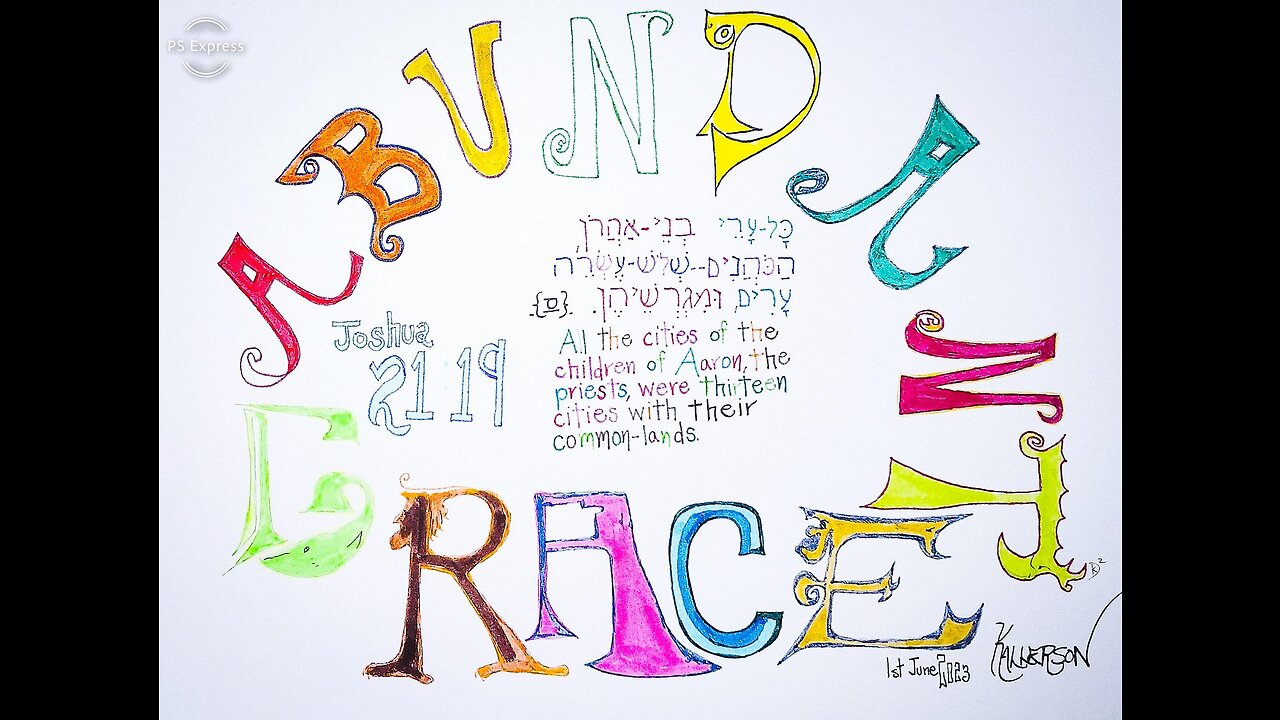 PS Express
ABUNDANT
כָּל-עָרֵי בְּנֵי-אַהֲרֹן,
הַכֹּהֲנִים--שְׁלֹשׁ-עֶשְׂרֵה
עָרִים, וּמִגְרְשֵׁיהֶן. {ס}
Joshua
21 19
All the cities of the
children of Aaron, the
priests, were thirteen
cities with their
common-lands.
GRACE
1st June 2023
KALVERSON